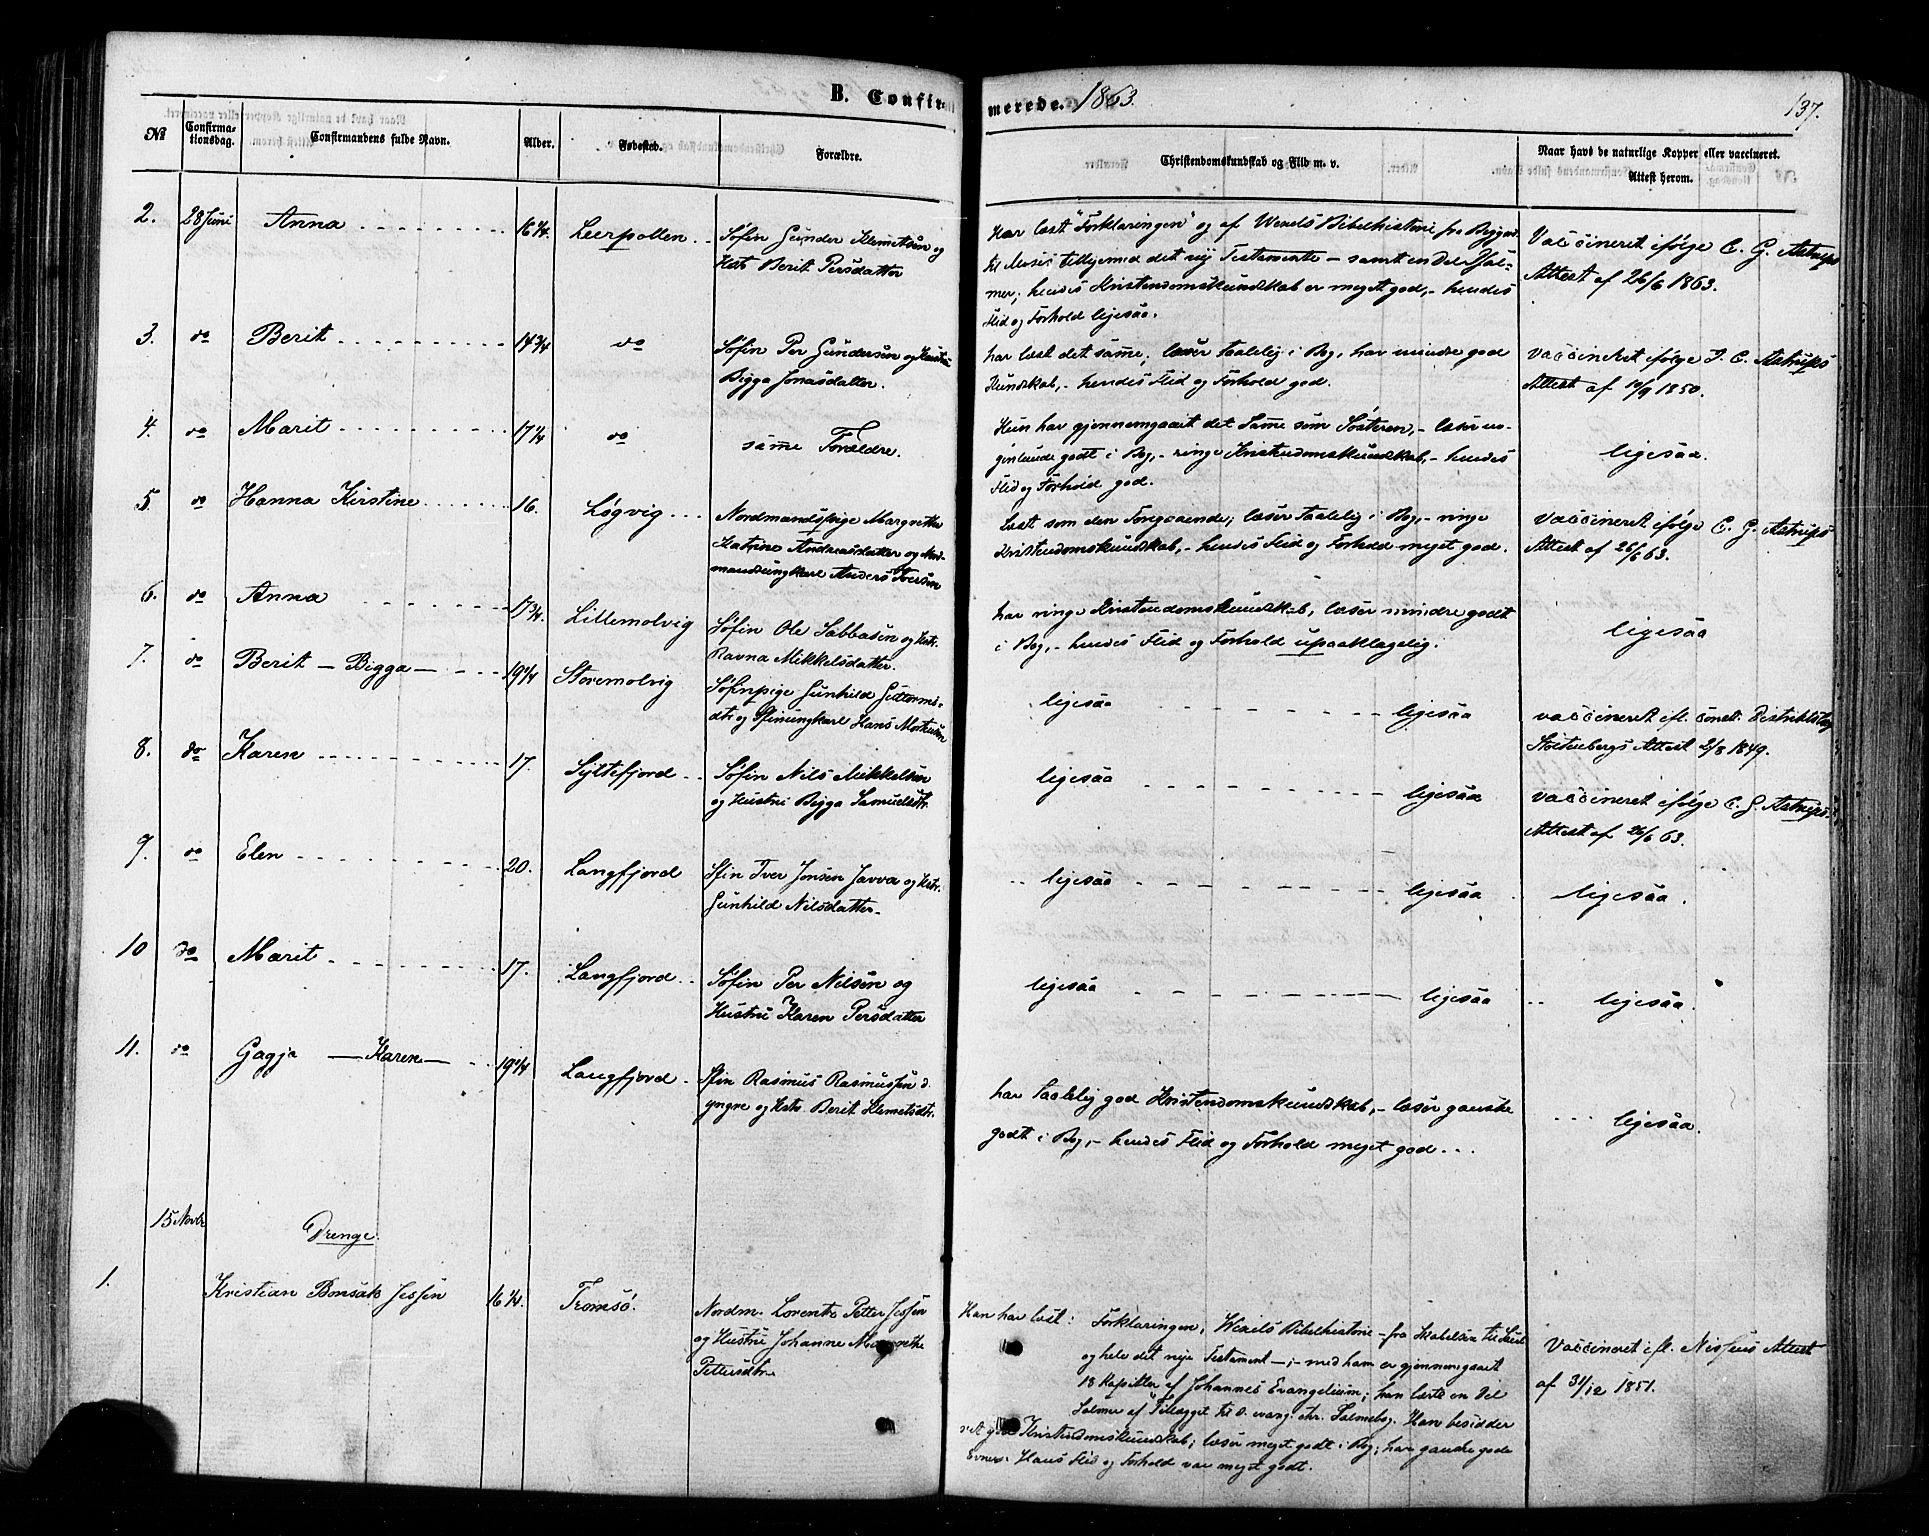 B. Confirmerede. 1863.
137.
No
Confirma-
tionsdag.
Confirmandens fulde Navn.
Alder.
Fødested.
Forældre.
Christendomskundskab og Flid m. v.
Naar havt de naturlige Kopper eller vaccineret.
Attest herom.
2. 28 Juni Anna 16 1/4. Leerpollen
Søfin Gunder Klemetsen og
Hstr Berit Persdatter
Har læst "Forklaringen" og af Wexels Bibelhistorie fra Begynd.
til Moses tilligemed det nye Testamente – samt en Del Sal-
mer; hendes Kristendomskundskab er meget god, – hendes
Flid og Forhold ligesaa.
Vaccineret ifølge C. G. Astrups
Attest af 26/6 1863.
3. do Berit 14 3/4 do
Søfin Per Gundersen og Hustru
Bigga Jonasdatter.
har læst det samme; læser taalelig i Bog, har mindre god
Kundskab, – hendes Flid og Forhold god.
Vaccineret ifølge C. Astrups
Attest af 10/9 1850.
4. do Marit 17 1/4 do
samme Forældre.
Hun har gjennemgaaet det Samme som Søsteren, – læser no-
genlunde godt i Bog, – ringe Kristendomskundskab, – hendes
Flid og Forhold god.
ligesaa.
5. do Hanna Kirstine 16. Løgvig
Nordmandspige Margrethe
Katrine Andreasdatter og Nord-
mandsungkarl Anders Iversen
Læst som den Foregaaende; læser taalelig i Bog, – ringe
Kristendomskundskab, – hendes Flid og Forhold meget god.
Vaccineret ifølge C. G. Astrups
Attest af 26/6 63.
6. do Anna 17 3/4. Lillemolvig
Søfin Ole Sabbasen og Hstr.
Ravna Mikkelsdatter.
har ringe Kristendomskundskab, læser mindre godt
i Bog, – hendes Flid og Forhold upaaklagelig.
ligesaa
7. do Berit – Bigga – 19 1/4 Storemolvig
Søfinpige Gunhild Guttorms-
dtr og Sfinungkarl Hans Mortensen
ligesaa ligesaa
vaccineret ifl. const. Distriktslæg
Stoltenbergs Attest 2/8 1849.
8. do Karen 17. Syltefjord
Søfin Nils Mikkelsen
og Hustru Bigga Samuelsdtr.
ligesaa ligesaa
vaccineret ifølge C. G. Astrups
Attest af 26/6 63.
9. do Elen 20. Langfjord
Sfin Iver Jonsen Javva og Hstr.
Gunhild Nilsdatter.
ligesaa ligesaa
ligesaa.
10 do Marit 17. Langfjord
Søfin Per Nilsen og
Hustru Karen Persdatter
ligesaa ligesaa
ligesaa.
11. do Gagja – Karen – 19 1/4 Langfjord
Sfin Rasmus Rasmussen d.
yngre og Hstr. Berit Klemetsdtr.
har taalelig god Kristendomskundskab, – læser ganske
godt i Bog, – hendes Flid og Forhold meget god
ligesaa.
15 Novbr
Drenge.
1. Kristian Bonsak Jessen 16 1/4. Tromsö.
Nordm. Lorents Petter Jessen
og Hustru Johanne Margrethe
Pettersdtr.
Han har læst: Forklaringen, Wexels Bibelhistorie – fra Skabelsen til
og hele det nye Testament –; – med ham er gjennemgaaet
18 Kapitler af Johannes Evangelium; han lærte en Del
Salmer af Tillægget til d. evang. chr. Salmebog. Han besidder
Kristendomskundskab; læser meget godt i Bog; har ganske gode
Evner. Hans Flid og Forhold var meget godt.
Vaccineret ifl. Attest
af 31/12 1851.